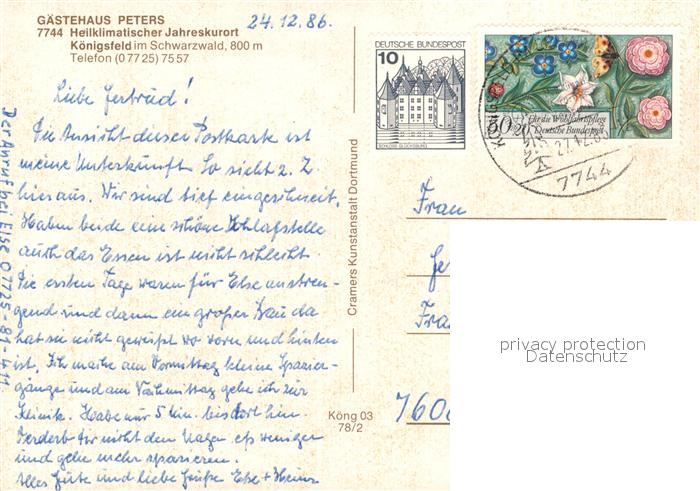 GÄSTEHAUS PETERS
7744 Heilklimatischer Jahreskurort
Königsfeld im Schwarzwald, 800 m
Telefon (0 77 25) 75 57
24.12.86.
Liebe Gertrud!
Die Ansicht dieser Postkarte ist
meine Unterkunft. So sieht z. Z.
hier aus. Wir sind tief eingeschneit.
Haben beide eine schöne Schlafstelle
auch das Essen ist nicht schlecht.
Die ersten Tage waren für Else anstren-
gend und dann ein großer Bau da
hat sie nicht gewußt wo vorn und hinten
ist. Ich mache am Vormittag kleine Spazier-
gänge und am Nachmittag gehe ich zur
Klinik. Habe nur 5 Min. bis dort hin.
Verderb Dir nicht den Magen eß weniger
und gehe mehr spazieren.
Alles Gute und liebe Grüße Else + Heinz
Der Anruf bei Else 07725-81-411
Cramers Kunstanstalt Dortmund
Köng 03
78/2
DEUTSCHE BUNDESPOST
10
SCHLOSS GLÜCKSBURG
80+20
Für die Wohlfahrtspflege
Deutsche Bundespost
7744
Frau
Ge
Fra
760
privacy protection
Datenschutz